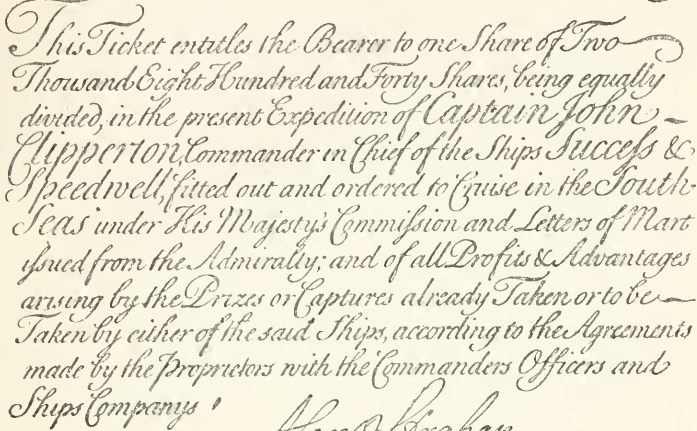 This Ticket entitles the Bearer to one Share of Two
Thousand Eight Hundred and Forty Shares, being equally
divided, in the present Expedition of Captain John
Clipperton, Commander in Chief of the Ships Succeſs &
Speedwell, fitted out and ordered to Cruise in the South
Seas under His Majesty's Commiſsion and Letters of Mart
iſsued from the Admiralty; and of all Profits & Advantages
arising by the Prizes or Captures already Taken or to be
Taken by either of the said Ships, according to the Agreements
made by the Proprietors with the Commanders Officers and
Ships Companys